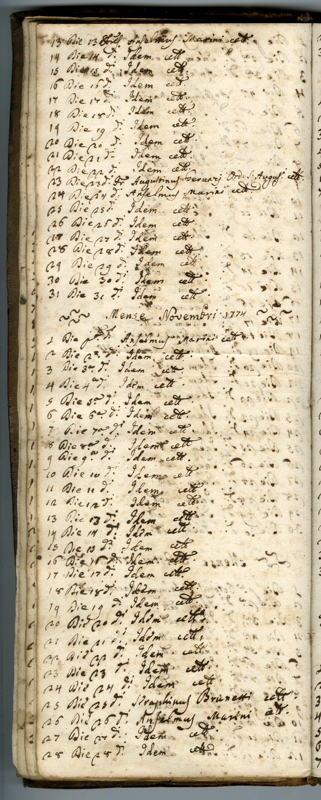 13 Die 13 dtt Anselmus Marini cett
14 Die 14 d.i Idem cett
15 Die 15 d.i Idem cett
16 Die 16 d.i Idem cett
17 Die 17 d.i Idem cett
18 Die 18 d.i Idem cett
19 Die 19 d.i Idem cett
20 Die 20 d.i Idem cett
21 Die 21 d.i Idem cett
22 Die 22 d.i Idem cett
23 Die 23 d.i Augustinus Ord. S. August cett
24 Die 24 d.i Anselmus Marini cett
25 Die 25 d.i Idem cett
26 Die 26 d.i Idem cett
27 Die 27 d.i Idem cett
28 Die 28 d.i Idem cett
29 Die 29 d.i Idem cett
30 Die 30 d.i Idem cett
31 Die 31 d.i Idem cett
Mense Novembri 1774
1 Die p.a d.i Anselmus Marini cett
2 Die 2.a d.i Idem cett
3 Die 3.a d.i Idem cett
4 Die 4.a d.i Idem cett
5 Die 5.a d.i Idem cett
6 Die 6.a d.i Idem cett
7 Die 7.a d.i Idem cett
8 Die 8.a d.i Idem cett
9 Die 9.a d.i Idem cett
10 Die 10 d.i Idem cett
11 Die 11 d.i Idem cett
12 Die 12 d.i Idem cett
13 Die 13 d.i Idem cett
14 Die 14 d.i Idem cett
15 Die 15 d.i Idem cett
16 Die 16 d.i Idem cett
17 Die 17 d.i Idem cett
18 Die 18 d.i Idem cett
19 Die 19 d.i Idem cett
20 Die 20 d.i Idem cett
21 Die 21 d.i Idem cett
22 Die 22 d.i Idem cett
23 Die 23 d.i Idem cett
24 Die 24 d.i Idem cett
25 Die 25 d.i Seraphinus Brunetti cett
26 Die 26 d.i Anselmus Marini cett
27 Die 27 d.i Idem cett
28 Die 28 d.i Idem cett